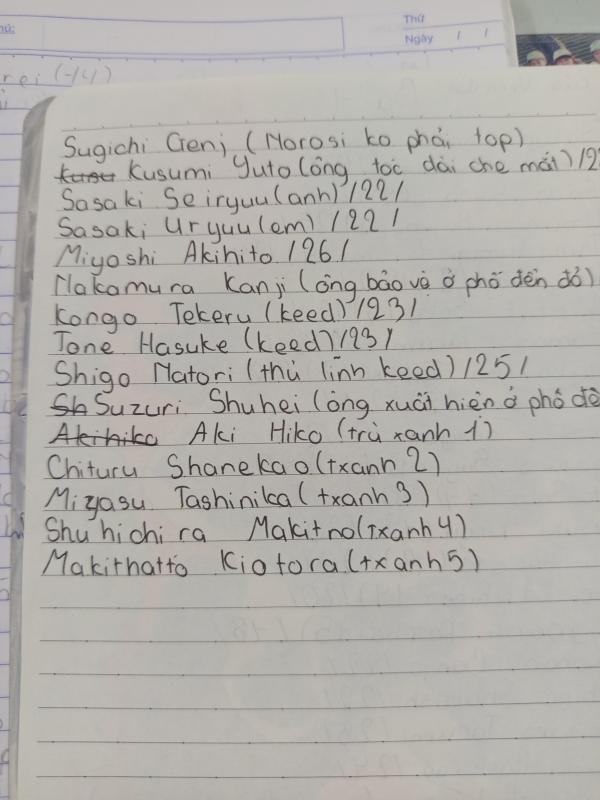 Thứ
Ngày / /
rei (-14)
Sugichi Genj (Morosi ko phải top)
Kusumi Yuto (ông tóc dài che mắt) /2
Sasaki Seiryuu (anh) /22/
Sasaki Uryuu (em) /22/
Miyoshi Akihito /26/
Nakamura Kanji (ông bảo vệ ở phố đèn đỏ)
Kongo Tekeru (keed) /23/
Tone Hasuke (keed) /23/
Shigo Natori (thủ lĩnh keed) /25/
Sh Suzuri Shuhei (ông xuất hiện ở phố đè
Akihiko Aki Hiko (trà xanh 1)
Chituru Shanekao (txanh 2)
Miyasu Tashinika (txanh 3)
Shuhichira Makitno (txanh 4)
Makithatto Kiotora (txanh 5)